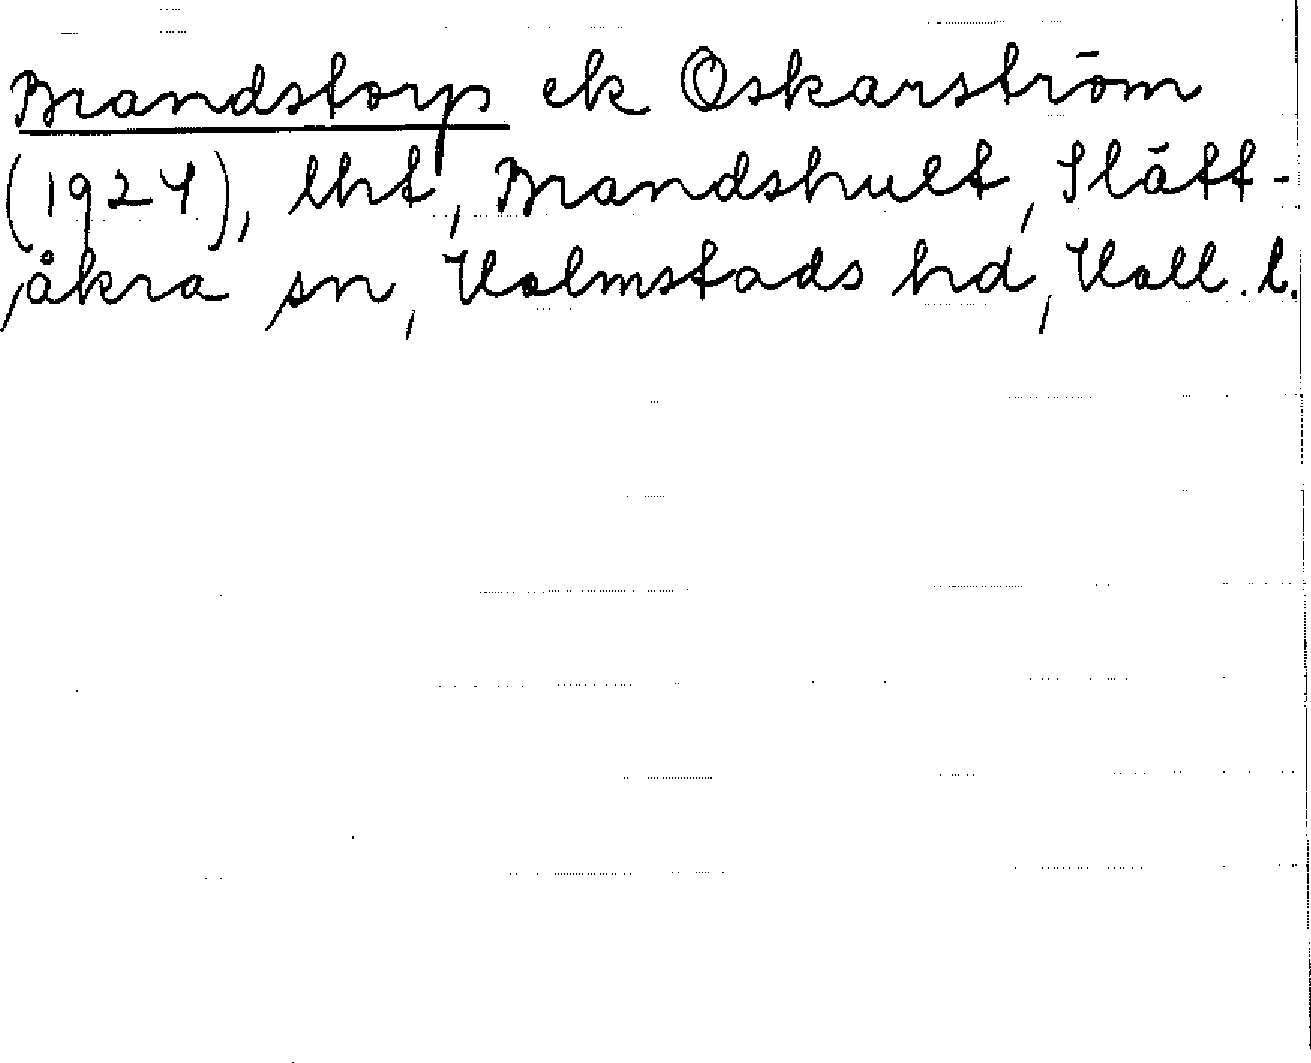 Brandstorp ek Oskarström
(1924), lht, Brandshult, Slätt-
åkra sn, Halmstads hd, Hall. l.